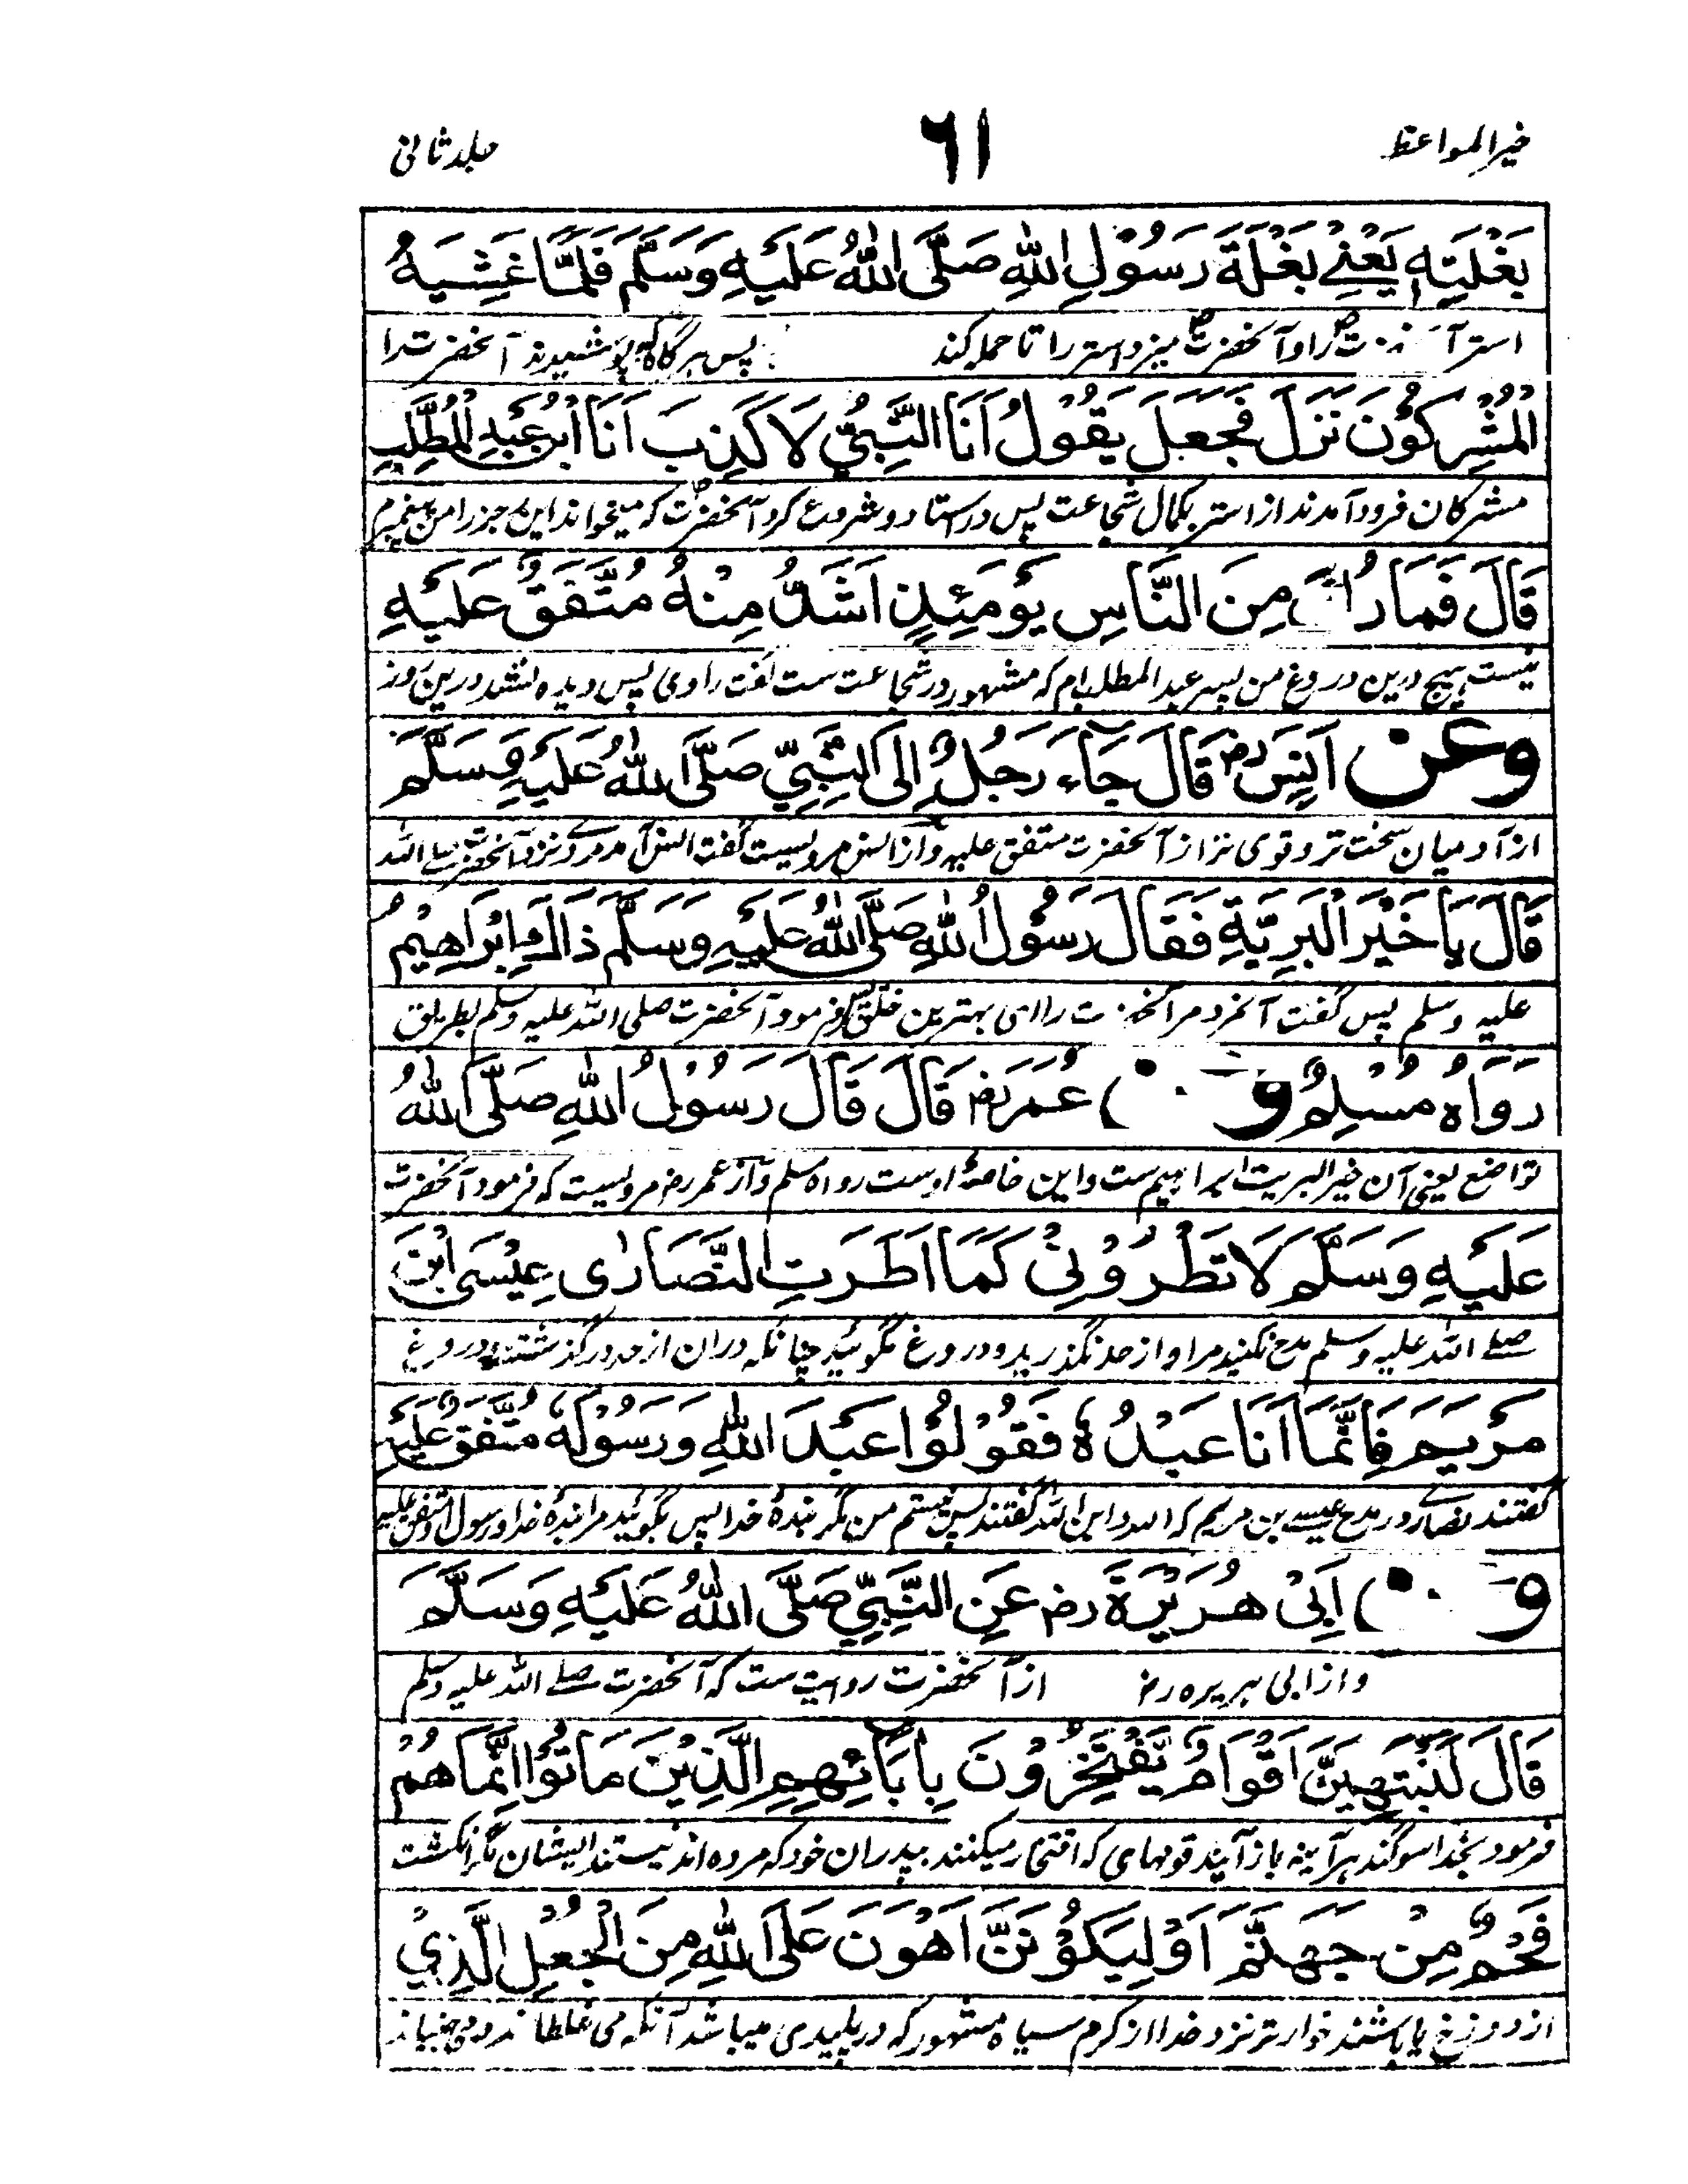 خیر المواعظ ٦١ جلد ثانی
بَغْلَتِهٖ يَعْنِے بَغْلَةَ رَسُوْلِ اللّٰهِ صَلَّى اللّٰهُ عَلَيْهِ وَسَلَّمَ فَلَمَّا غَشِيَهُ
استر را و آنحضرت میزد استر را تا حمله کند پس هرگاه که پوشیدند آنحضرت را
الْمُشْرِكُوْنَ نَزَلَ فَجَعَلَ يَقُوْلُ اَنَا النَّبِيُّ لَا كَذِبَ اَنَا ابْنُ عَبْدِ الْمُطَّلِبِ
مشرکان فرود آمدند از استر بکمال شجاعت پس در استاد و شروع کرد آنحضرت که میخواند این رجز را من پیغمبرم
قَالَ فَمَا مِنَ النَّاسِ يَوْمَئِذٍ اَشَدُّ مِنْهُ مُتَّفَقٌ عَلَيْهِ
نیست هیچ درین دروغ من پسر عبد المطلب ام که مشهور در شجاعت ست گفت راوی پس دیده نشد درین روز
وعن اَنَسٍ رض قَالَ جَاءَ رَجُلٌ اِلَى النَّبِيِّ صَلَّى اللّٰهُ عَلَيْهِ وَسَلَّمَ
از آدمیان سخت تر و قوی تر از آنحضرت متفق علیه و از انس مرویست گفت انس آمد مردے نزد آنحضرت صلے اللہ
قَالَ يَا خَيْرَ الْبَرِيَّةِ فَقَالَ رَسُوْلُ اللّٰهِ صَلَّى اللّٰهُ عَلَيْهِ وَسَلَّمَ ذَالِكَ اِبْرَاهِيْمُ
علیه وسلم پس گفت آنمرد مر آنحضرت را ای بهترین خلق پس فرمود آنحضرت صلی اللہ علیه وسلم بطریق
رَوَاهُ مُسْلِمٌ عُمَرَ رض قَالَ قَالَ رَسُوْلُ اللّٰهِ صَلَّى اللّٰهُ
تواضع یعنی آن خیر البریت ابراهیم ست و این خاصهٔ اوست رواه مسلم و از عمر رض مرویست که فرمود آنحضرت
عَلَيْهِ وَسَلَّمَ لَا تَطْرُوْنِيْ كَمَا اَطْرَتِ النَّصَارٰى عِيْسَى ابْنَ
صلے اللہ علیه وسلم مدح نکنید مرا و از حد نگذرید و دروغ نگوئید چنانکه دران از حد درگذشتند و دروغ
مَرْيَمَ فَاِنَّمَا اَنَا عَبْدُهٗ فَقُوْلُوْا عَبْدَ اللّٰهِ وَرَسُوْلَهٗ مُتَّفَقٌ عَلَيْهِ
گفتند نصارے در مدح عیسے بن مریم که اله و ابن الله گفتند پس نیستم من مگر بندهٔ خدا پس بگوئید مرا بندهٔ خدا و رسول او متفق علیه
اَبِيْ هُرَيْرَةَ رض عَنِ النَّبِيِّ صَلَّى اللّٰهُ عَلَيْهِ وَسَلَّمَ
و از ابی هریره رض از آنحضرت روایت ست که آنحضرت صلے اللہ علیه وسلم
قَالَ لَيَنْتَهِيَنَّ اَقْوَامٌ يَفْتَخِرُوْنَ بِاٰبَائِهِمِ الَّذِيْنَ مَاتُوْا اِنَّمَا هُمْ
فرمود بخدا سوگند هر آینه باز آیند قومهای که افتخار میکنند بپدران خود که مرده اند نیستند ایشان مگر انگشت
فَحْمٌ مِنْ جَهَنَّمَ اَوْ لَيَكُوْنَنَّ اَهْوَنَ عَلَى اللّٰهِ مِنَ الْجُعَلِ الَّذِيْ
از دوزخ یا باشند خوار تر نزد خدا از کرم سیاه مشهور که در پلیدی میباشد آنکه می غلطاند و می جنباند